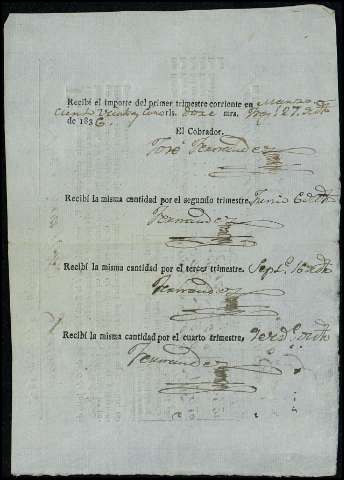 Recibí el importe del primer trimestre corriente en Marzo
Ciento Veinte y cinco rs. doce mrs. 27
de 1836.
El Cobrador.
José Fernandez
Recibí la misma cantidad por el segundo trimestre. Junio 6
Fernandez
Recibí la misma cantidad por el tercer trimestre. Sept.e 16
Fernandez
Recibí la misma cantidad por el cuarto trimestre.
Fernandez